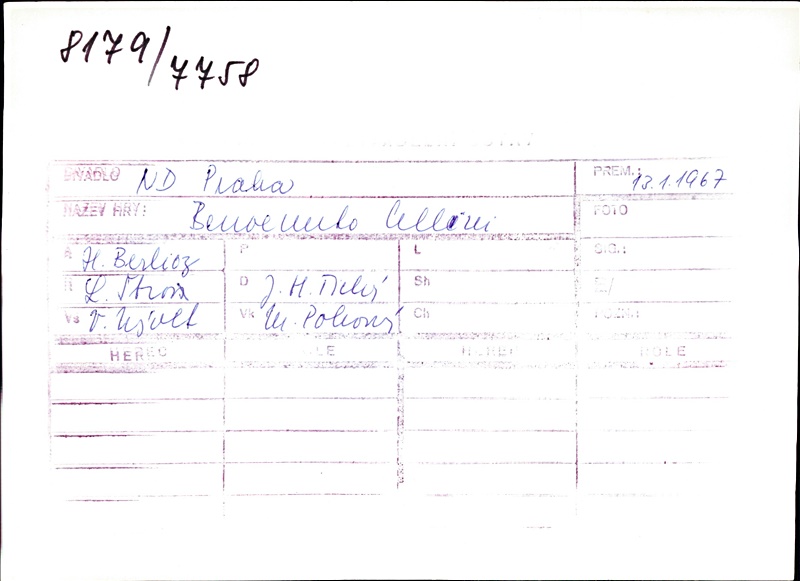 8179/7758
DIVADLO ND Praha PREM.: 13.1.1967
NÁZEV HRY: Benvenuto Cellini FOTO
A H. Berlioz P L SIG.:
R L. Štros D J. H. Tichý Sh
Vs V. Nývlt Vk M. Pokorný Ch POZN.:
HEREC ROLE HEREC ROLE